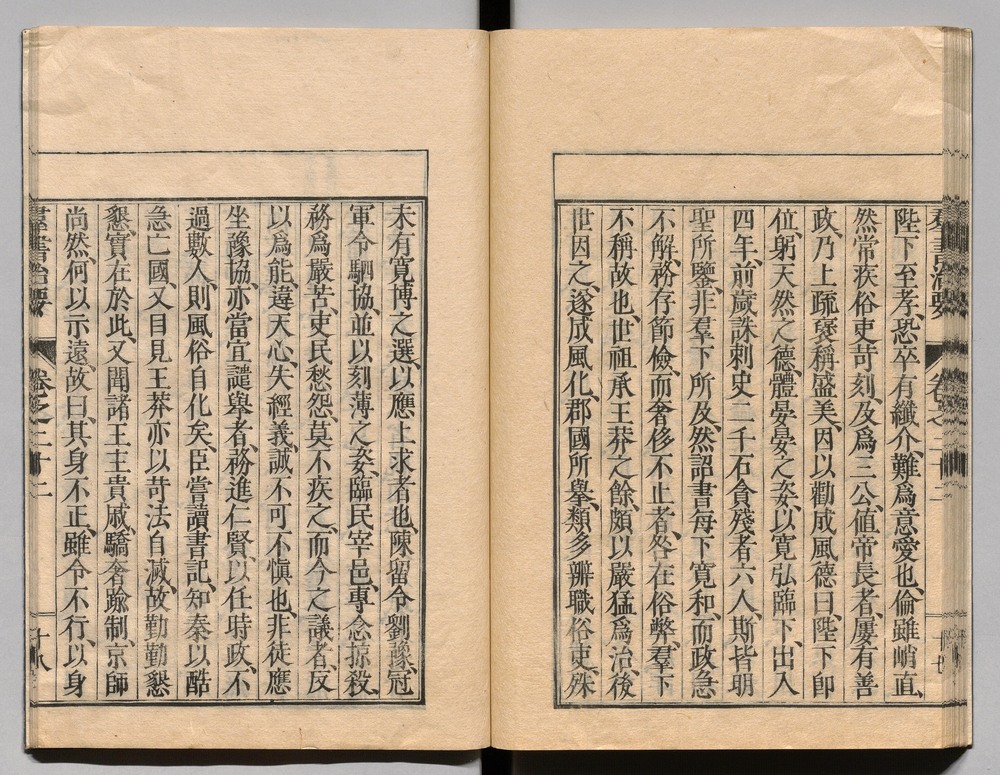 羣書治要
陛下至孝、恐卒有纖介、難爲意愛也、倫雖峭直、
然常疾俗吏苛刻、及爲三公、値帝長者、屢有善
政、乃上疏襃稱盛美、因以勸成風德曰、陛下卽
位、躬天然之德、體晏晏之姿、以寬弘臨下、出入
四年、前歲誅刺史二千石貪殘者六人、斯皆明
聖所鑒、非羣下所及、然詔書每下寬和、而政急
不解、務存節儉、而奢侈不止者、咎在俗弊、羣下
不稱故也、世祖承王莽之餘、頗以嚴猛爲治、後
世因之、遂成風化、郡國所擧、類多辦職俗吏、殊
未有寬博之選、以應上求者也、陳留令劉豫、冠
軍令駟協、並以刻薄之姿、臨民宰邑、專念掠殺、
務爲嚴苦、吏民愁怨、莫不疾之、而今之議者、反
以爲能、違天心、失經義、誠不可不愼也、非徒應
坐豫協、亦當宜譴擧者、務進仁賢、以任時政、不
過數人、則風俗自化矣、臣嘗讀書記、知秦以酷
急亡國、又目見王莽亦以苛法自滅、故勤勤懇
懇、實在於此、又聞諸王主貴戚、驕奢踰制、京師
尚然、何以示遠、故曰、其身不正、雖令不行、以身
羣書治要 卷之二十二 十八